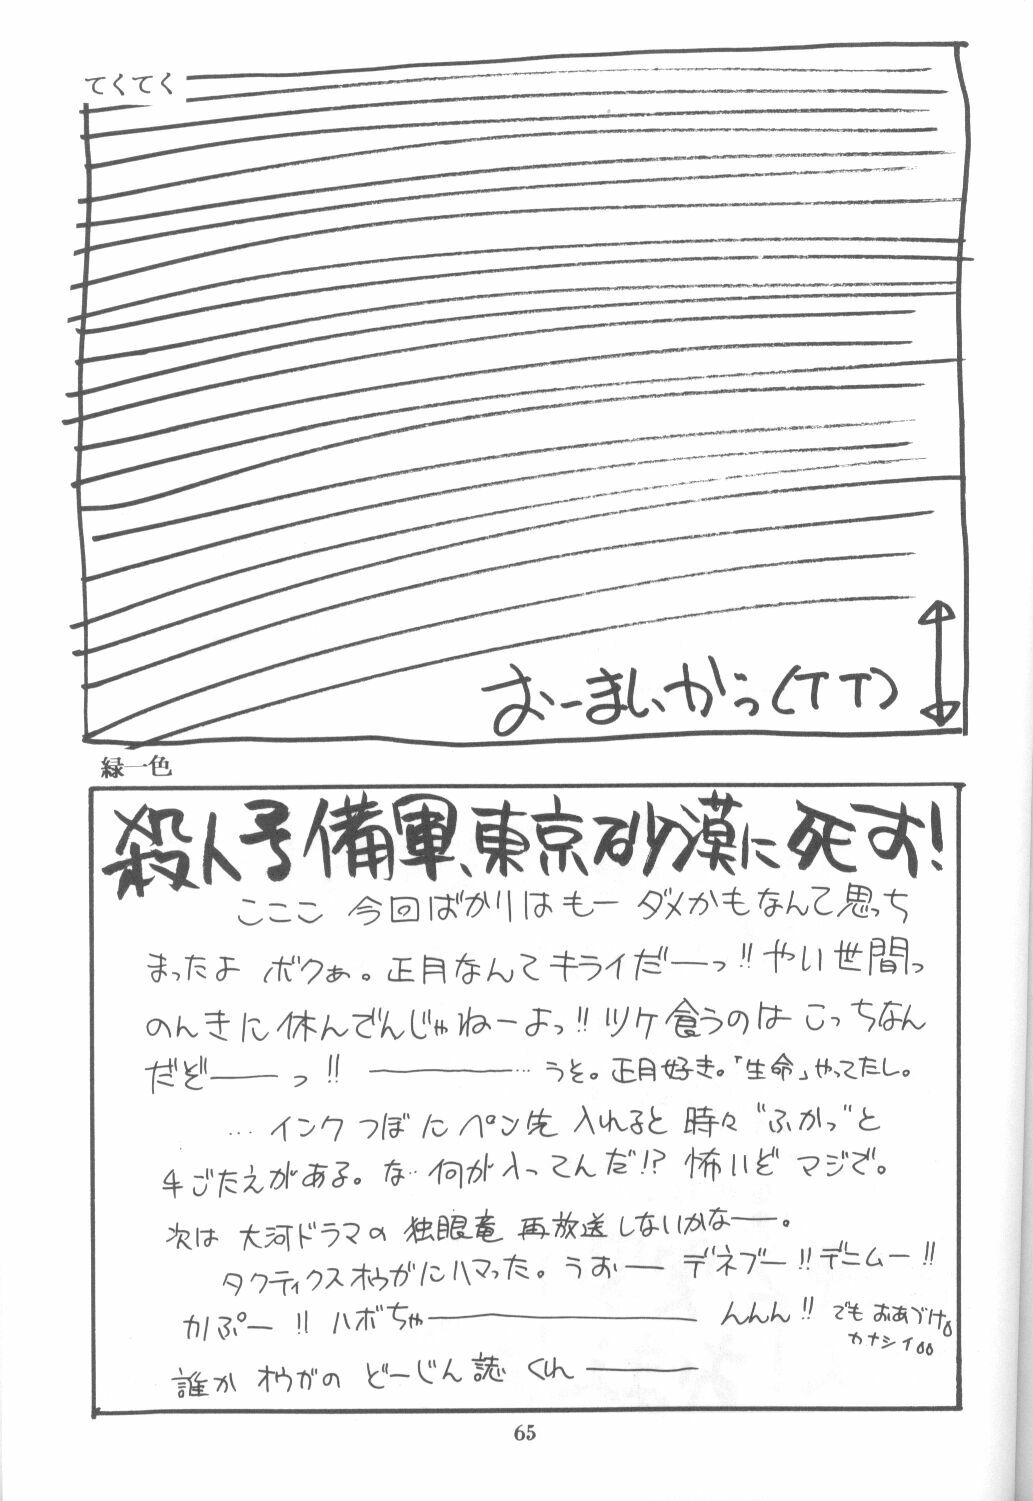 てくてく
おーまいがっ(TT)
緑一色
殺人予備軍、東京砂漠に死す!
こここ 今回ばかりはもー ダメかもなんて思っち
まったよ ボクぁ。正月なんてキライだーーっ!! やい世間っ
のんきに休んでんじゃねーよっ!! ツケ食うのは こっちなん
だぞーーっ!! ーーーーー… うそ。正月好き。「生命」やってたし。
…インクつぼにペン先 入れると 時々 “ふかっ”と
手ごたえがある。な…何が入ってんだ!? 怖いぞ マジで。
次は 大河ドラマの 独眼竜 再放送しないかなーー。
タクティクスオウガにハマった。うおーー デネブー!! デニムー!!
カノぷー!! ハボちゃーーーーーーー んんん!! でも おあづけ。
カナシイ。。
誰か オウガの どーじん誌 くれーーーー
65